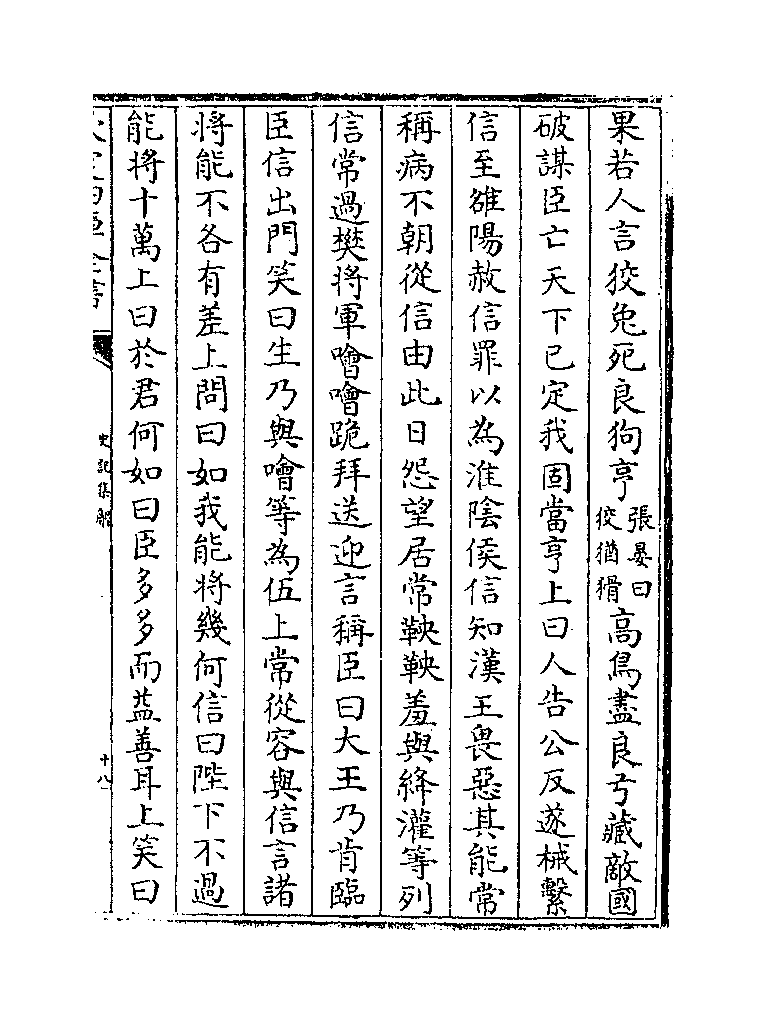 果若人言狡兔死良狗亨張晏曰狡猶猾高鳥盡良弓藏敵國
破謀臣亡天下已定我固當亨上曰人告公反遂械繫
信至雒陽赦信罪以為淮陰侯信知漢王畏惡其能常
稱病不朝從信由此日怨望居常鞅鞅羞與絳灌等列
信常過樊將軍噲噲跪拜送迎言稱臣曰大王乃肯臨
臣信出門笑曰生乃與噲等為伍上常從容與信言諸
將能不各有差上問曰如我能將幾何信曰陛下不過
能將十萬上曰於君何如曰臣多多而益善耳上笑曰
欽定四庫全書
史記集解
十八